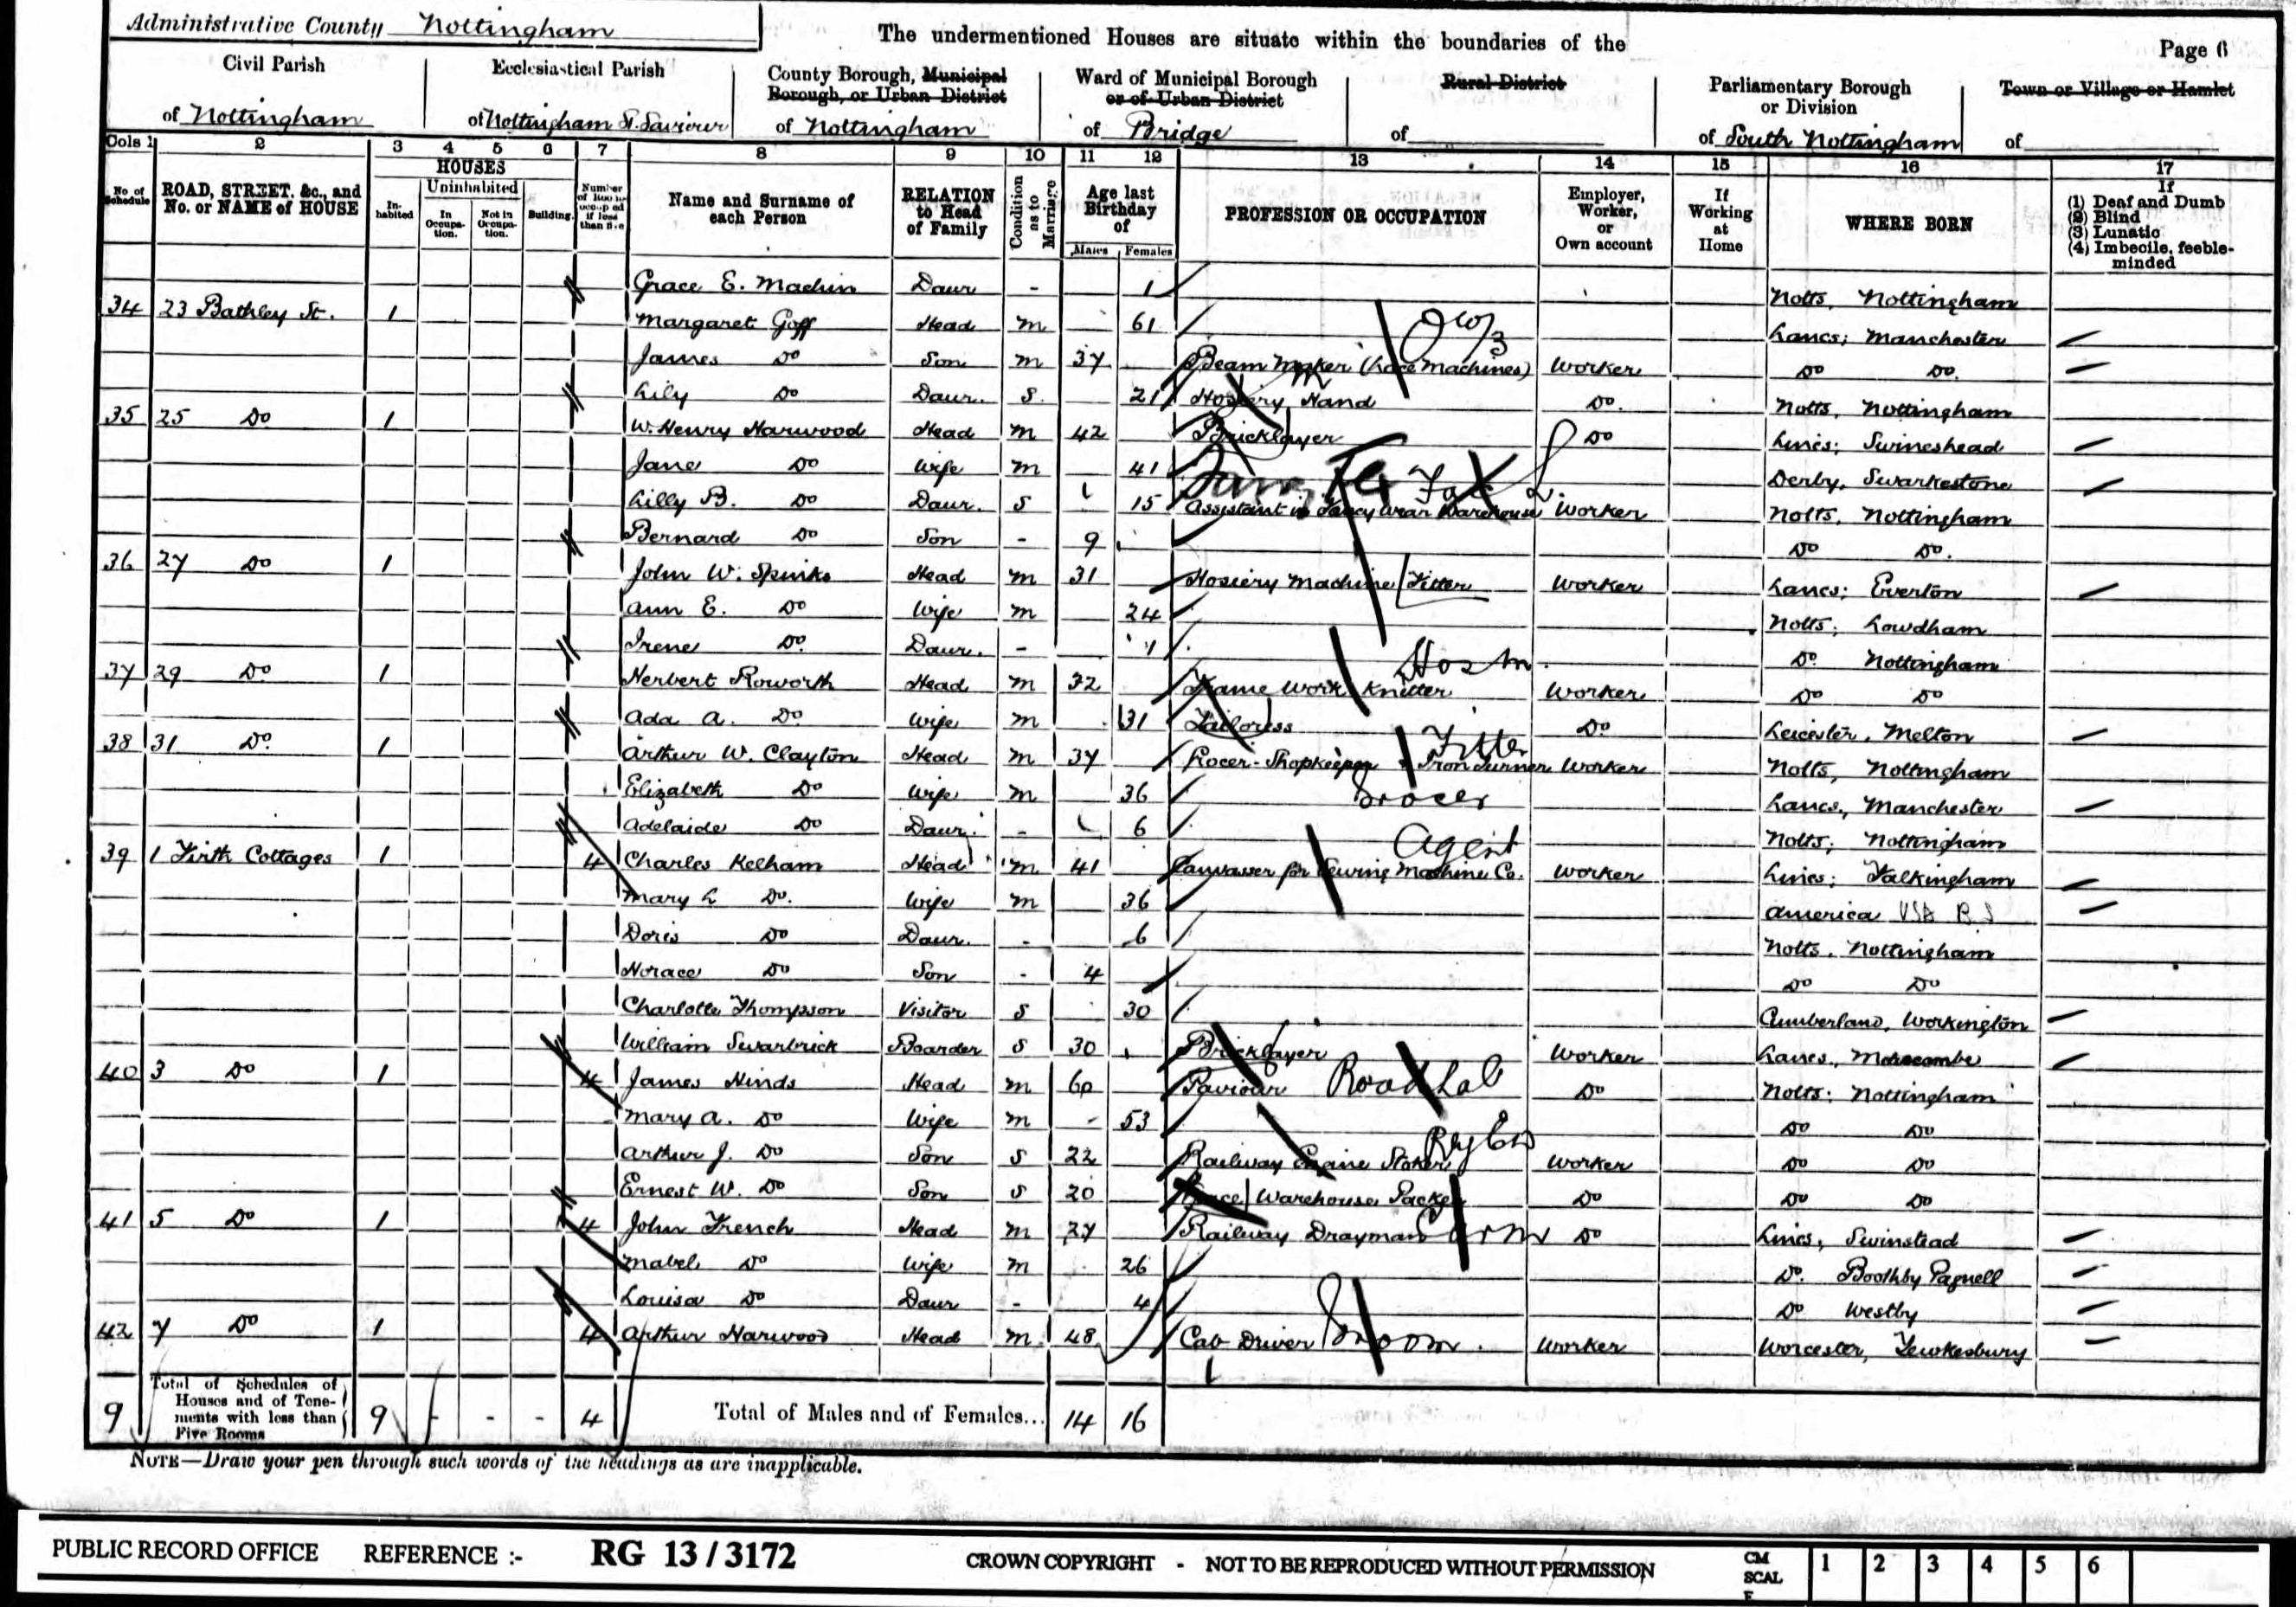 Administrative County Nottingham
The undermentioned Houses are situate within the boundaries of the
Page 6
Civil Parish of Nottingham
Ecclesiastical Parish of Nottingham St. Saviour
County Borough, Municipal Borough, or Urban District of Nottingham
Ward of Municipal Borough or of Urban District of Bridge
Rural District of
Parliamentary Borough or Division of South Nottingham
Town or Village or Hamlet of
Cols 1 2 3 4 5 6 7 8 9 10 11 12 13 14 15 16 17
No of Schedule
ROAD, STREET, &c., and No. or NAME of HOUSE
HOUSES
Inhabited
Uninhabited
In Occupation.
Not in Occupation.
Building.
Number of Rooms occupied if less than five
Name and Surname of each Person
RELATION to Head of Family
Condition as to Marriage
Age last Birthday of
Males Females
PROFESSION OR OCCUPATION
Employer, Worker, or Own account
If Working at Home
WHERE BORN
If
(1) Deaf and Dumb
(2) Blind
(3) Lunatic
(4) Imbecile, feeble-minded
Grace E. Machin Daur - 1 Notts, Nottingham
34 23 Bathley St. 1 Margaret Goff Head M 61 Lancs; Manchester
James Do Son M 37 Beam Maker (Lace Machines) Worker Do Do.
Lily Do Daur. S. 21 Hosiery Hand Do. Notts, Nottingham
35 25 Do 1 W. Henry Harwood Head M 42 Bricklayer Do Lincs; Swineshead
Jane Do Wife M 41 Derby, Swarkestone
Lilly B. Do Daur. S 15 Assistant in Fancy Wear Warehouse Worker Notts, Nottingham
Bernard Do Son - 9 Do Do.
36 27 Do 1 John W. Spinks Head M 31 Hosiery Machine Fitter Worker Lancs; Everton
Ann E. Do Wife M 24 Notts; Lowdham
Irene Do Daur. - 1 Do Nottingham
Hos M
37 29 Do 1 Herbert Roworth Head M 32 Frame Work Knitter Worker Do Do
Ada A. Do Wife M 31 Tailoress Do Leicester, Melton
Fitter
38 31 Do 1 Arthur W. Clayton Head M 37 Grocer-Shopkeeper & Iron Turner Worker Notts, Nottingham
Elizabeth Do Wife M 36 Grocer Lancs, Manchester
Adelaide Do Daur. - 6 Notts; Nottingham
Agent
39 1 Firth Cottages 1 4 Charles Kelham Head M 41 Canvasser for Sewing Machine Co. Worker Lincs; Falkingham
Mary L Do. Wife M 36 America USA B S
Doris Do Daur. - 6 Notts. Nottingham
Horace Do Son - 4 Do Do
Charlotte Thompson Visitor S 30 Cumberland, Workington
William Swarbrick Boarder S 30 Bricklayer Worker Lancs, Morecombe
40 3 Do 1 4 James Hinds Head M 60 Paviour Road Lab Do Notts: Nottingham
Mary A. Do Wife M - 53 Do Do
Arthur J. Do Son S 22 Railway Engine Stoker Worker Do Do
Ernest W. Do Son S 20 Lace Warehouse Packer Do Do Do
41 5 Do 1 4 John French Head M 27 Railway Drayman Carm Do Lincs, Swinstead
Mabel Do Wife M 26 Do. Boothby Pagnell
Louisa Do Daur - 4 Do Westby
42 7 Do 1 4 Arthur Harwood Head M 48 Cab Driver Groom Worker Worcester, Tewkesbury
9 Total of Schedules of Houses and of Tenements with less than Five Rooms 9 - - - 4 Total of Males and of Females... 14 16
NOTE—Draw your pen through such words of the headings as are inapplicable.
PUBLIC RECORD OFFICE REFERENCE :- RG 13 / 3172
CROWN COPYRIGHT - NOT TO BE REPRODUCED WITHOUT PERMISSION
CM SCALE 1 2 3 4 5 6